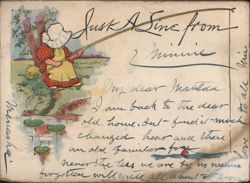 Just A Line from
Minnie
My dear Matilda
I am back to the dear
old home. but find it much
changed hear and there
an old familiar face
never the less we are by no means
forgotten will write all
Menasha
Love to all